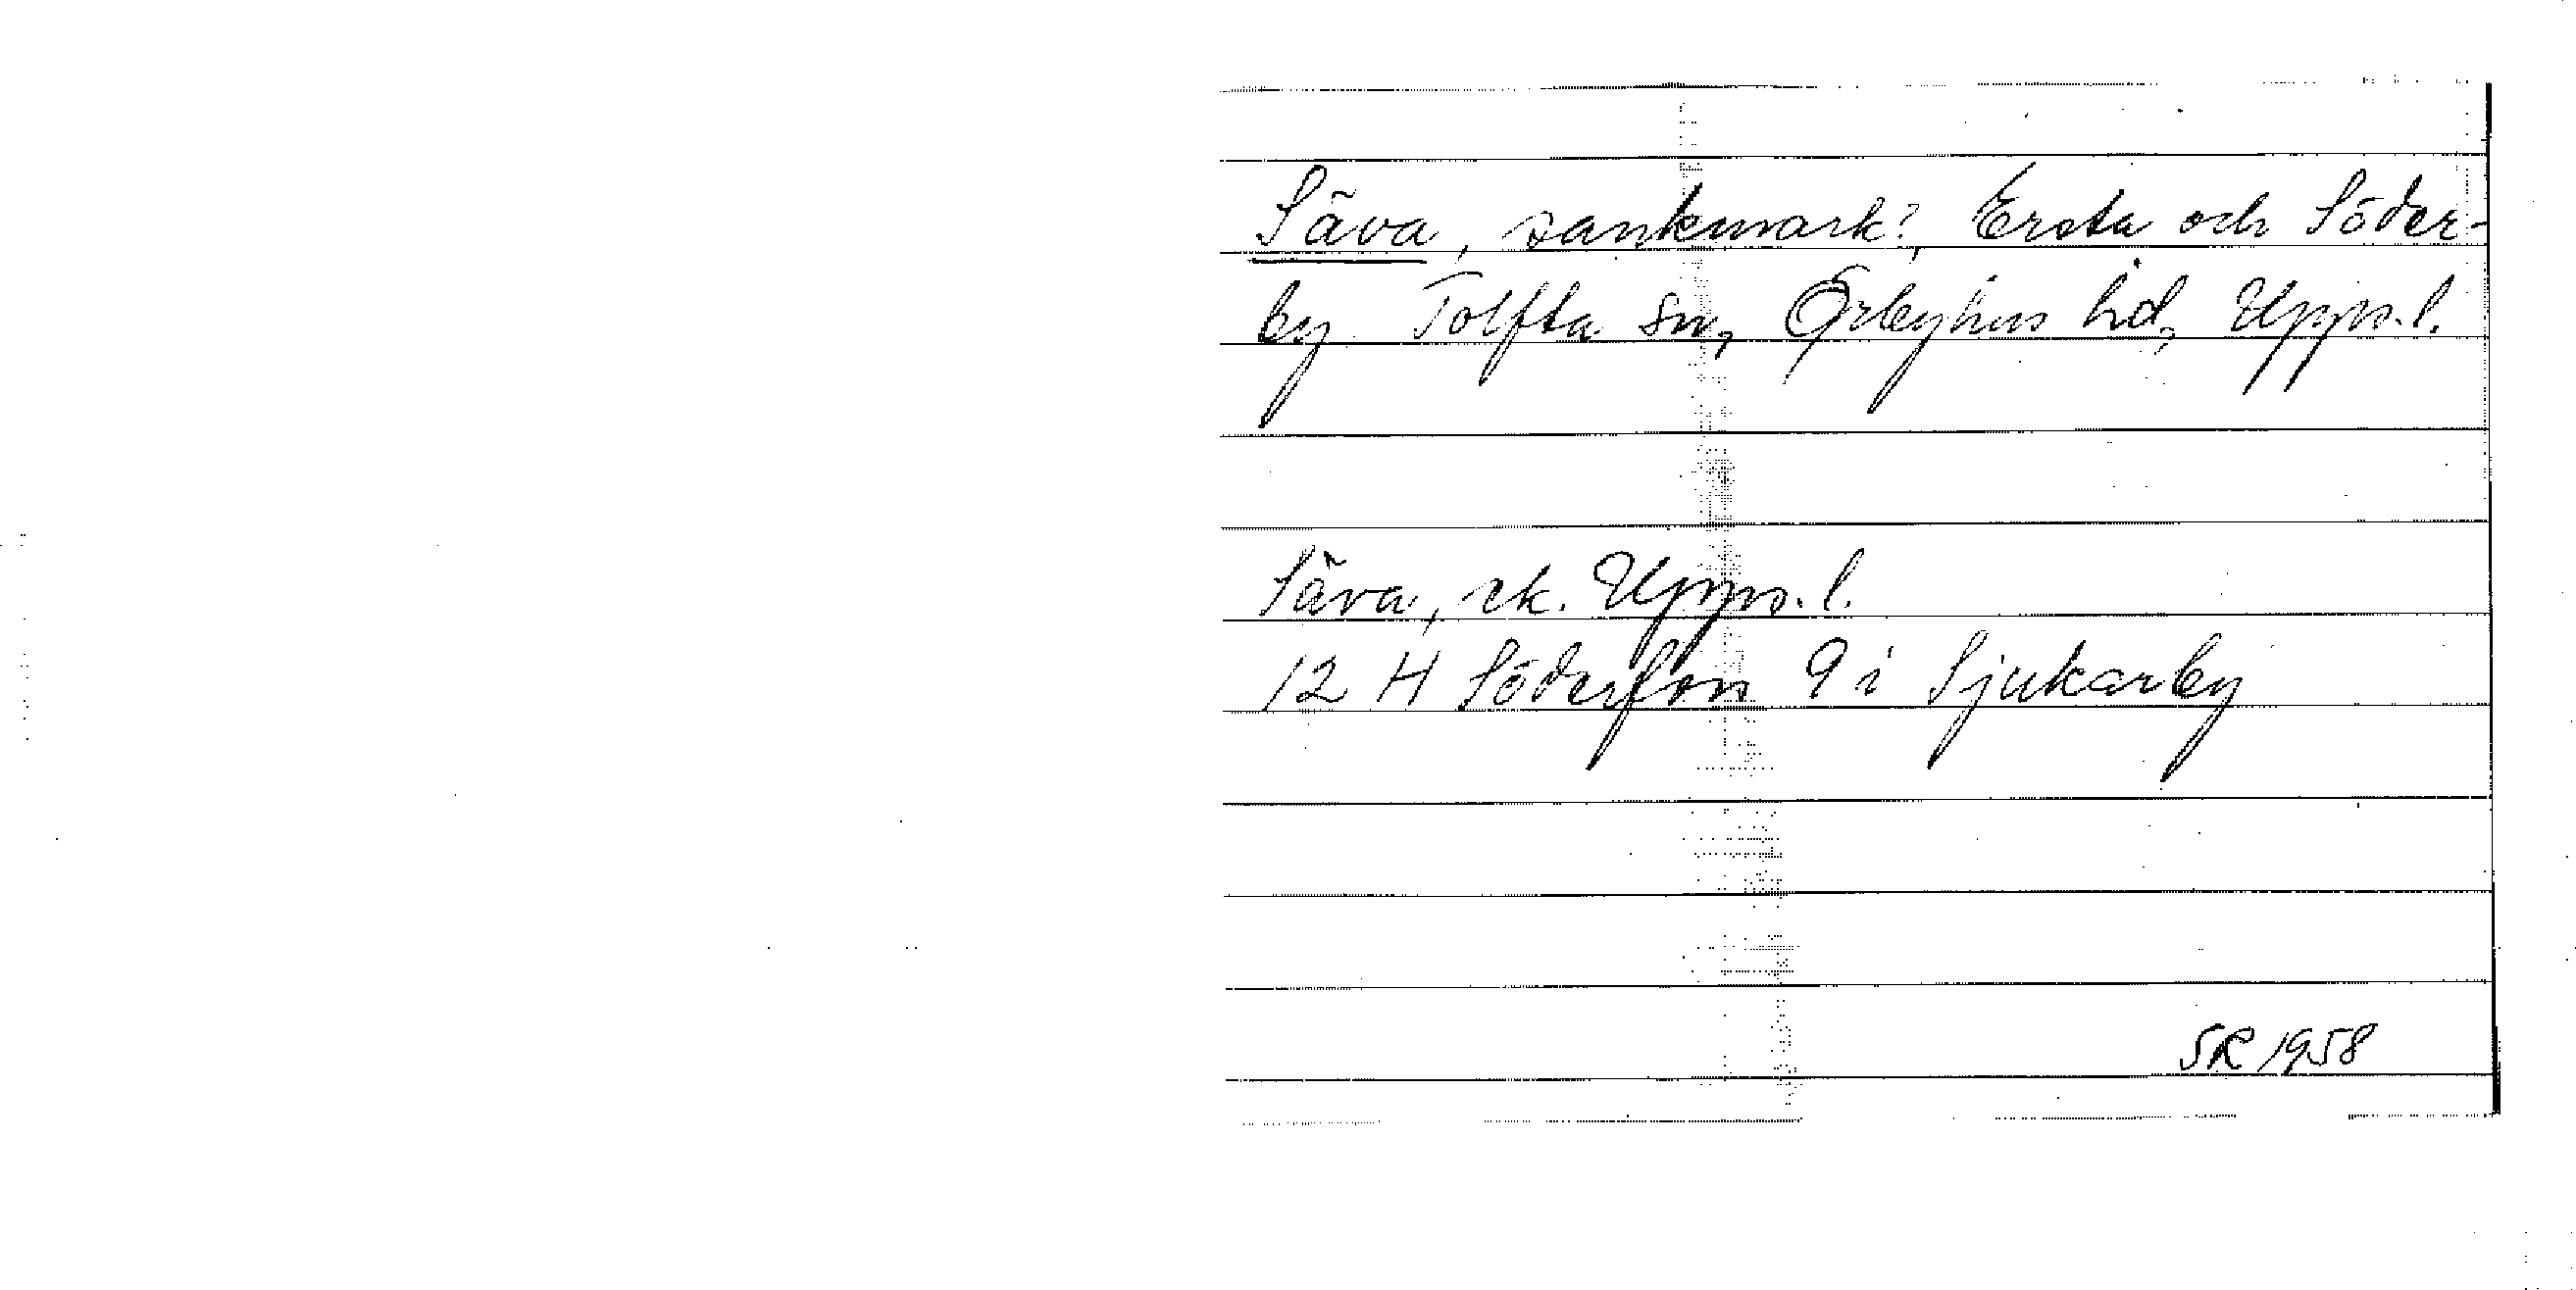 Säva, sankmark?, Ersta och Söder-
by Tolfta sn, Örbyhus hd, Upps.l.
Säva, ek. Upps. l.
12 H Söderfon 9 i Sjukarby
SR 1958